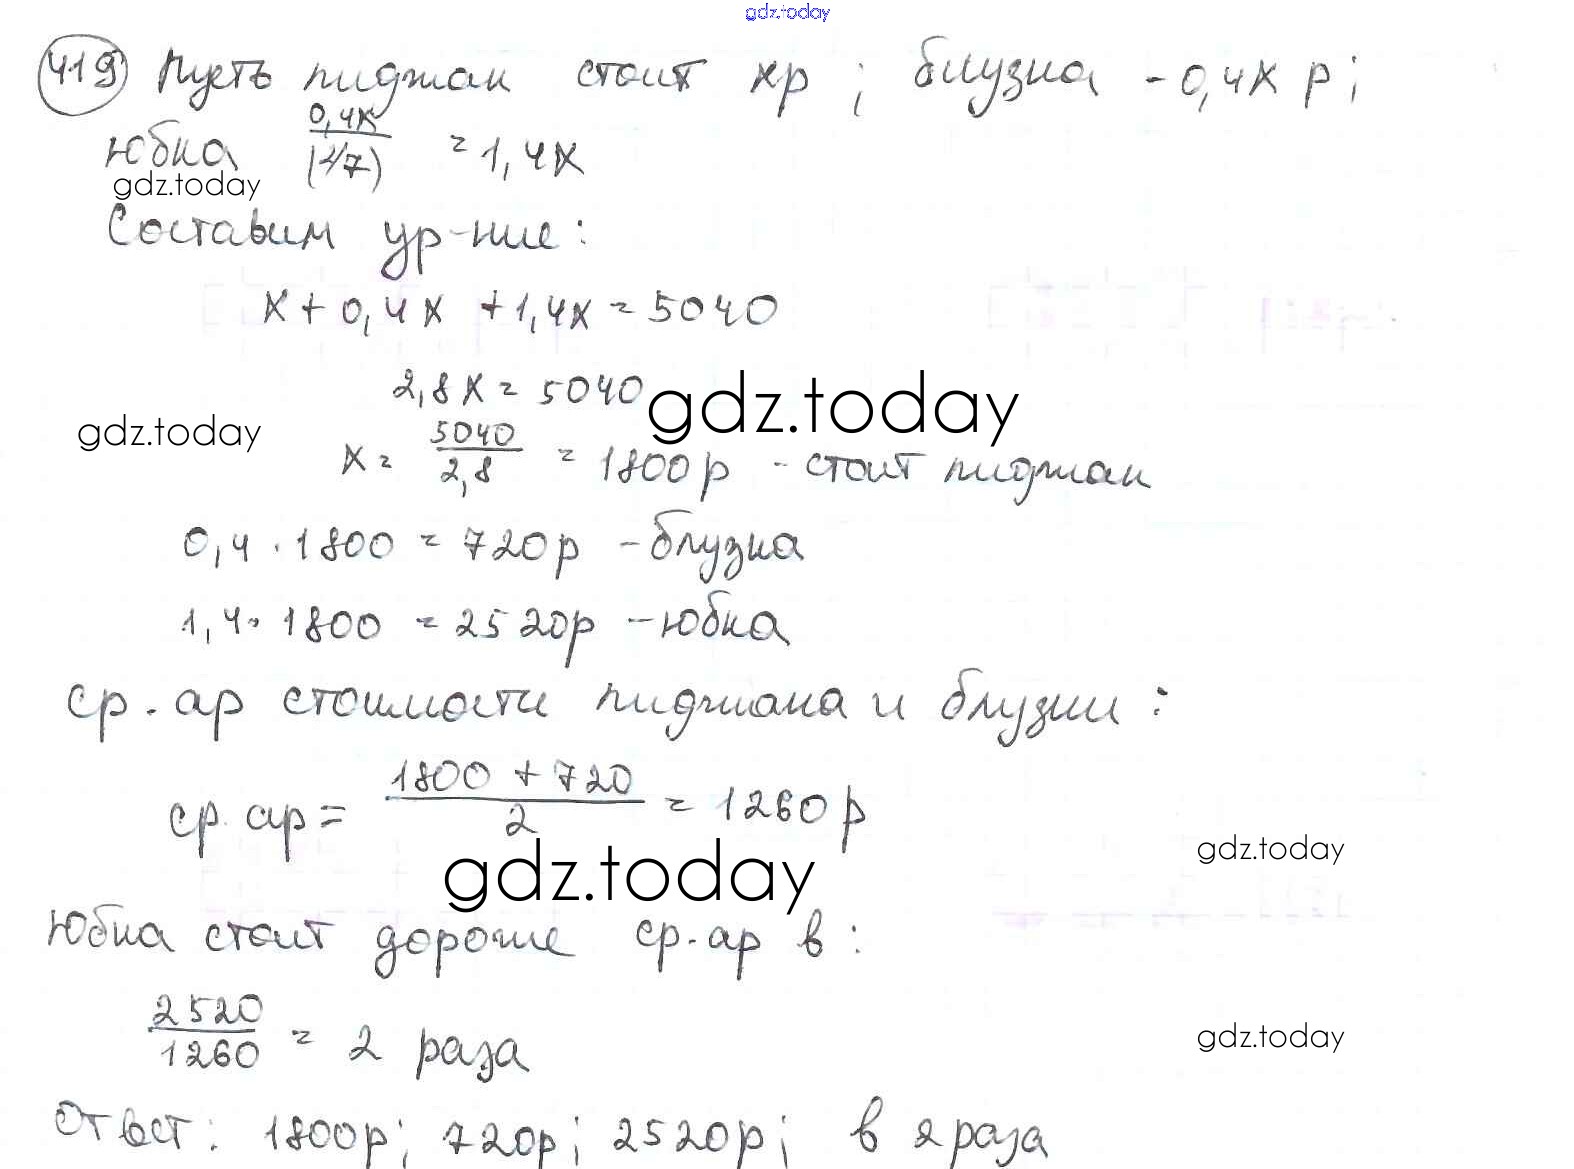 gdz.today
419 Пусть пиджак стоит xр; блузка - 0,4x р;
юбка 0,4x/(2/7) = 1,4x
gdz.today
Составим ур-ние:
x + 0,4x + 1,4x = 5040
2,8x = 5040
gdz.today
gdz.today
x = 5040/2,8 = 1800р - стоит пиджак
0,4 · 1800 = 720р - блузка
1,4 · 1800 = 2520р - юбка
ср. ар стоимости пиджака и блузки:
ср. ар = (1800 + 720)/2 = 1260р
gdz.today
gdz.today
Юбка стоит дороже ср. ар в:
2520/1260 = 2 раза
gdz.today
Ответ: 1800р; 720р; 2520р; в 2 раза